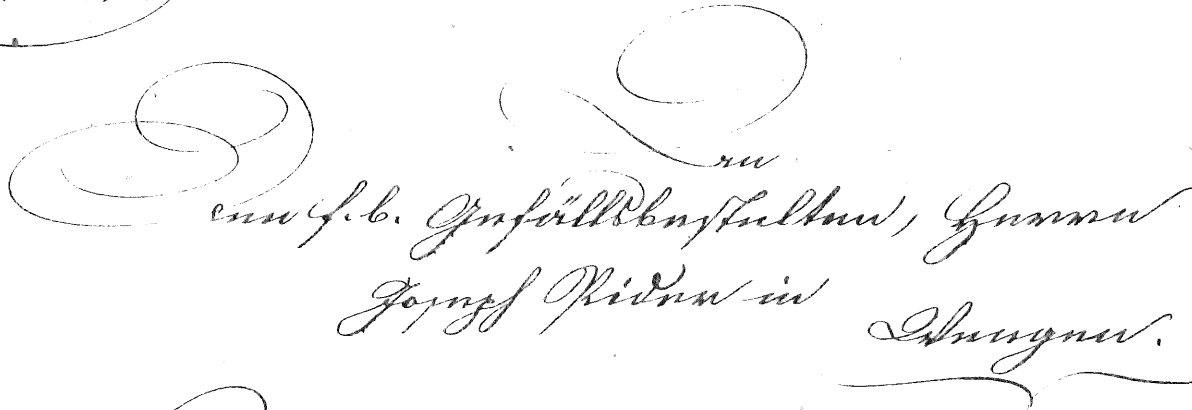 An
den f. b. Gefällsbestellten, Herrn
Joseph Rider in
Wengen.